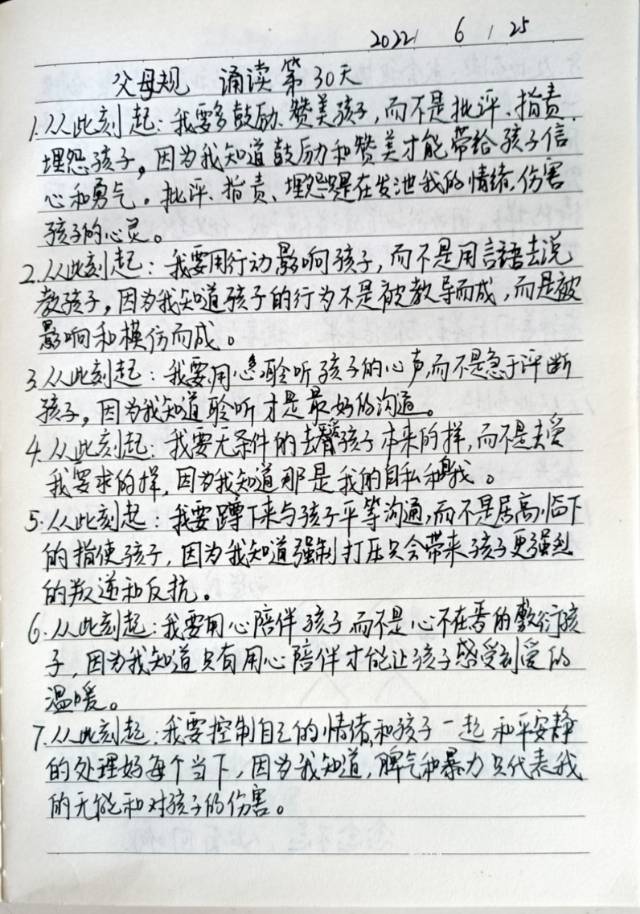 2022 6 25
父母规 诵读第30天
1.从此刻起：我要多鼓励、赞美孩子，而不是批评、指责、
埋怨孩子，因为我知道鼓励和赞美才能带给孩子信
心和勇气。批评、指责、埋怨是在发泄我的情绪，伤害
孩子的心灵。
2.从此刻起：我要用行动影响孩子，而不是用言语去说
教孩子，因为我知道孩子的行为不是被教导而成，而是被
影响和模仿而成。
3.从此刻起：我要用心聆听孩子的心声，而不是急于评断
孩子，因为我知道聆听才是最好的沟通。
4.从此刻起：我要无条件的去孩子本来的样，而不是去受
我要求的样，因为我知道那是我的自私和我。
5.从此刻起：我要蹲下来与孩子平等沟通，而不是居高临下
的指使孩子，因为我知道强制打压只会带来孩子更强烈
的叛逆和反抗。
6.从此刻起：我要用心陪伴孩子而不是心不在焉的敷衍孩
子，因为我知道只有用心陪伴才能让孩子感受到爱的
温暖。
7.从此刻起：我要控制自己的情绪，和孩子一起和平安静
的处理好每个当下，因为我知道，脾气和暴力只代表我
的无能和对孩子的伤害。